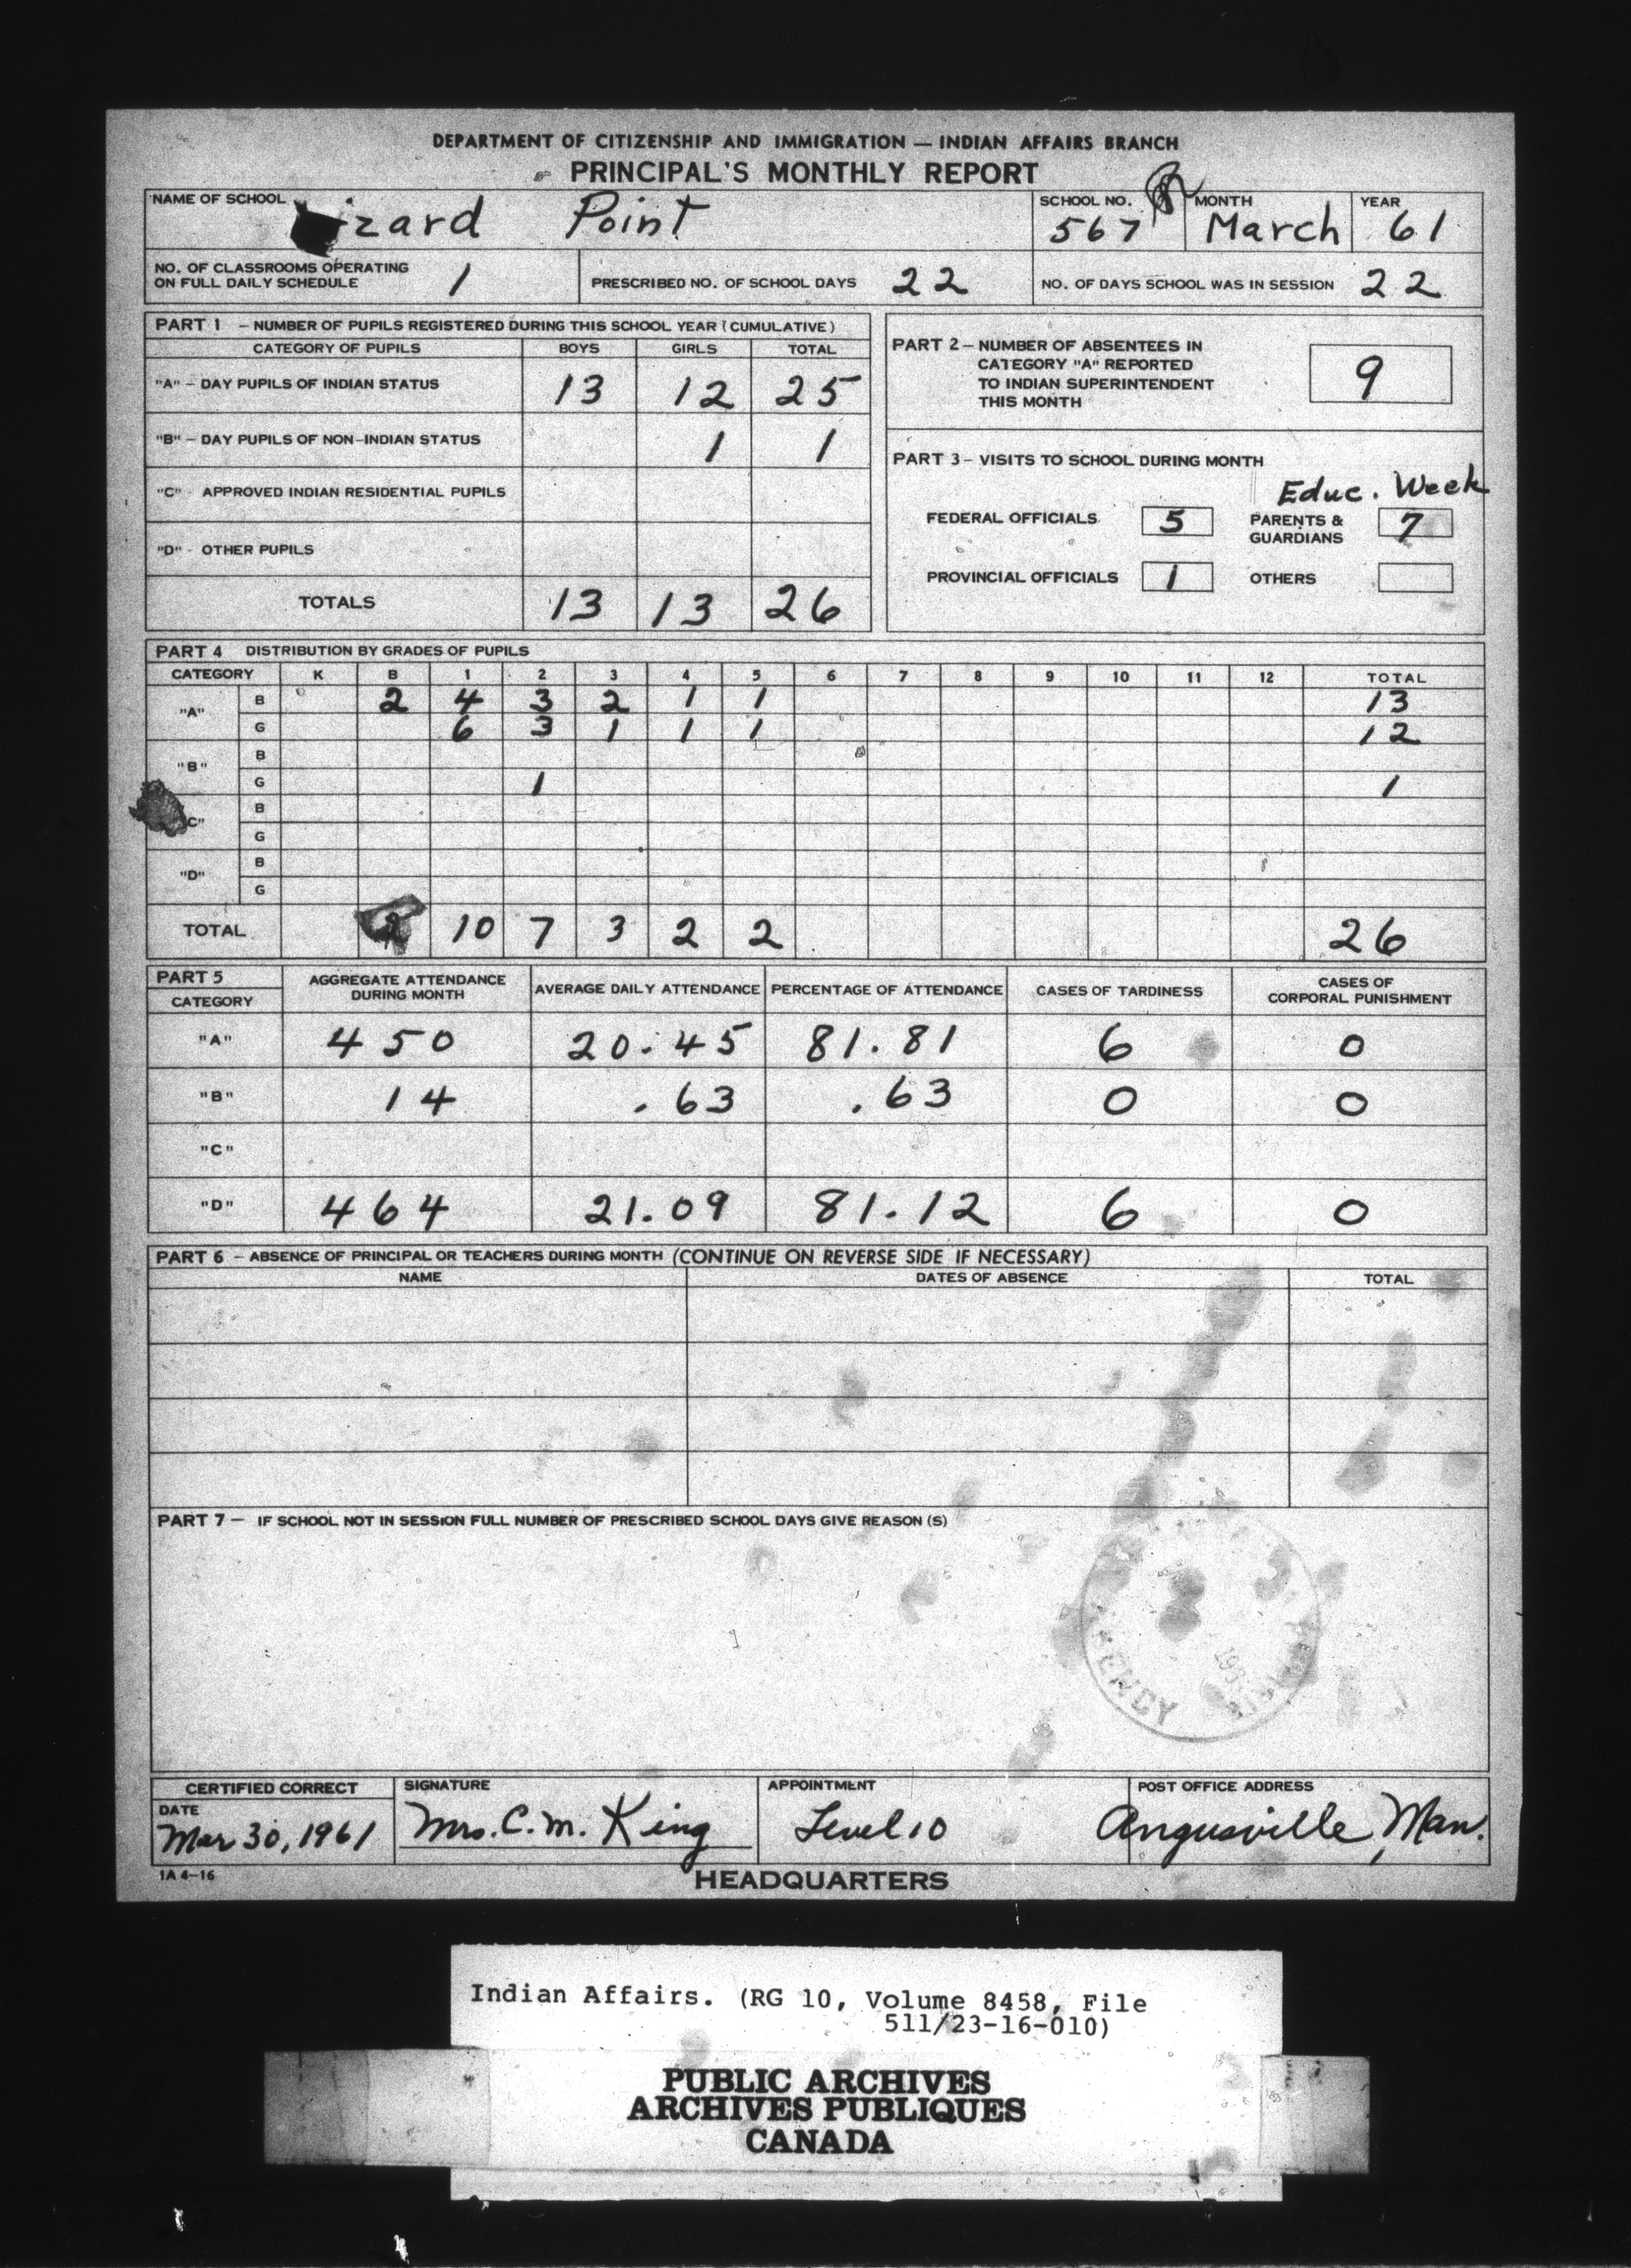 DEPARTMENT OF CITIZENSHIP AND IMMIGRATION — INDIAN AFFAIRS BRANCH
PRINCIPAL'S MONTHLY REPORT
NAME OF SCHOOL izard Point SCHOOL NO. 567 MONTH March YEAR 61
NO. OF CLASSROOMS OPERATING ON FULL DAILY SCHEDULE 1 PRESCRIBED NO. OF SCHOOL DAYS 22 NO. OF DAYS SCHOOL WAS IN SESSION 22
PART 1 – NUMBER OF PUPILS REGISTERED DURING THIS SCHOOL YEAR (CUMULATIVE)
CATEGORY OF PUPILS BOYS GIRLS TOTAL
"A" – DAY PUPILS OF INDIAN STATUS 13 12 25
"B" – DAY PUPILS OF NON-INDIAN STATUS 1 1
"C" - APPROVED INDIAN RESIDENTIAL PUPILS
"D" - OTHER PUPILS
TOTALS 13 13 26
PART 2 – NUMBER OF ABSENTEES IN
CATEGORY "A" REPORTED
TO INDIAN SUPERINTENDENT
THIS MONTH 9
PART 3 – VISITS TO SCHOOL DURING MONTH
Educ. Week
FEDERAL OFFICIALS 5 PARENTS & GUARDIANS 7
PROVINCIAL OFFICIALS 1 OTHERS
PART 4 DISTRIBUTION BY GRADES OF PUPILS
CATEGORY K B 1 2 3 4 5 6 7 8 9 10 11 12 TOTAL
"A" B 2 4 3 2 1 1 13
G 6 3 1 1 1 12
"B" B
G 1 1
C" B
G
"D" B
G
TOTAL 2 10 7 3 2 2 26
PART 5
CATEGORY AGGREGATE ATTENDANCE DURING MONTH AVERAGE DAILY ATTENDANCE PERCENTAGE OF ATTENDANCE CASES OF TARDINESS CASES OF CORPORAL PUNISHMENT
"A" 450 20.45 81.81 6 0
"B" 14 .63 .63 0 0
"C"
"D" 464 21.09 81.12 6 0
PART 6 – ABSENCE OF PRINCIPAL OR TEACHERS DURING MONTH (CONTINUE ON REVERSE SIDE IF NECESSARY)
NAME DATES OF ABSENCE TOTAL
PART 7 – IF SCHOOL NOT IN SESSION FULL NUMBER OF PRESCRIBED SCHOOL DAYS GIVE REASON (S)
CERTIFIED CORRECT SIGNATURE APPOINTMENT POST OFFICE ADDRESS
DATE
Mar 30, 1961 Mrs. C. M. King Level 10 Angusville, Man.
IA 4-16
HEADQUARTERS
Indian Affairs. (RG 10, Volume 8458, File
511/23-16-010)
PUBLIC ARCHIVES
ARCHIVES PUBLIQUES
CANADA